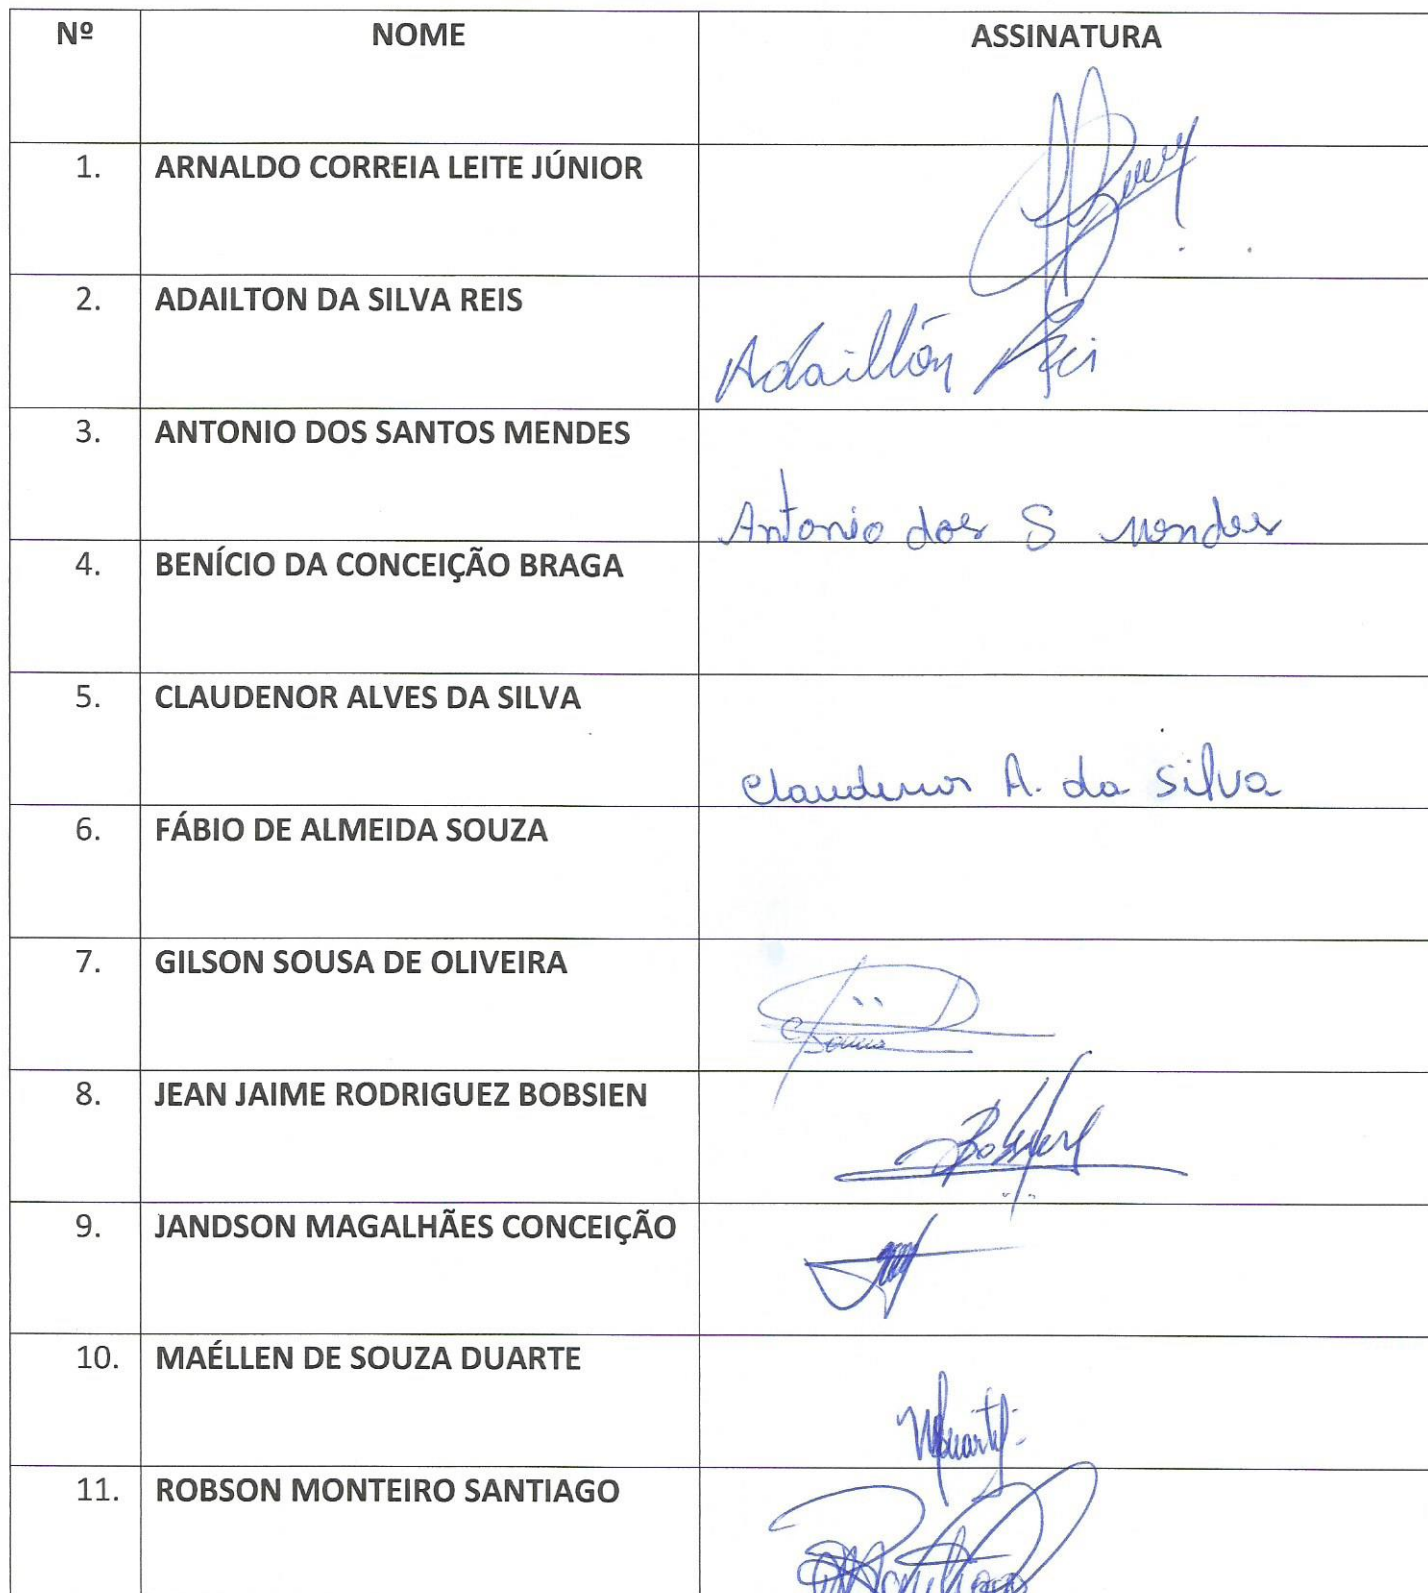 Nº NOME ASSINATURA
1. ARNALDO CORREIA LEITE JÚNIOR
2. ADAILTON DA SILVA REIS
Adailton Reis
3. ANTONIO DOS SANTOS MENDES
Antonio dos S Mendes
4. BENÍCIO DA CONCEIÇÃO BRAGA
5. CLAUDENOR ALVES DA SILVA
Claudenor A. da Silva
6. FÁBIO DE ALMEIDA SOUZA
7. GILSON SOUSA DE OLIVEIRA
8. JEAN JAIME RODRIGUEZ BOBSIEN
9. JANDSON MAGALHÃES CONCEIÇÃO
10. MAÉLLEN DE SOUZA DUARTE
11. ROBSON MONTEIRO SANTIAGO